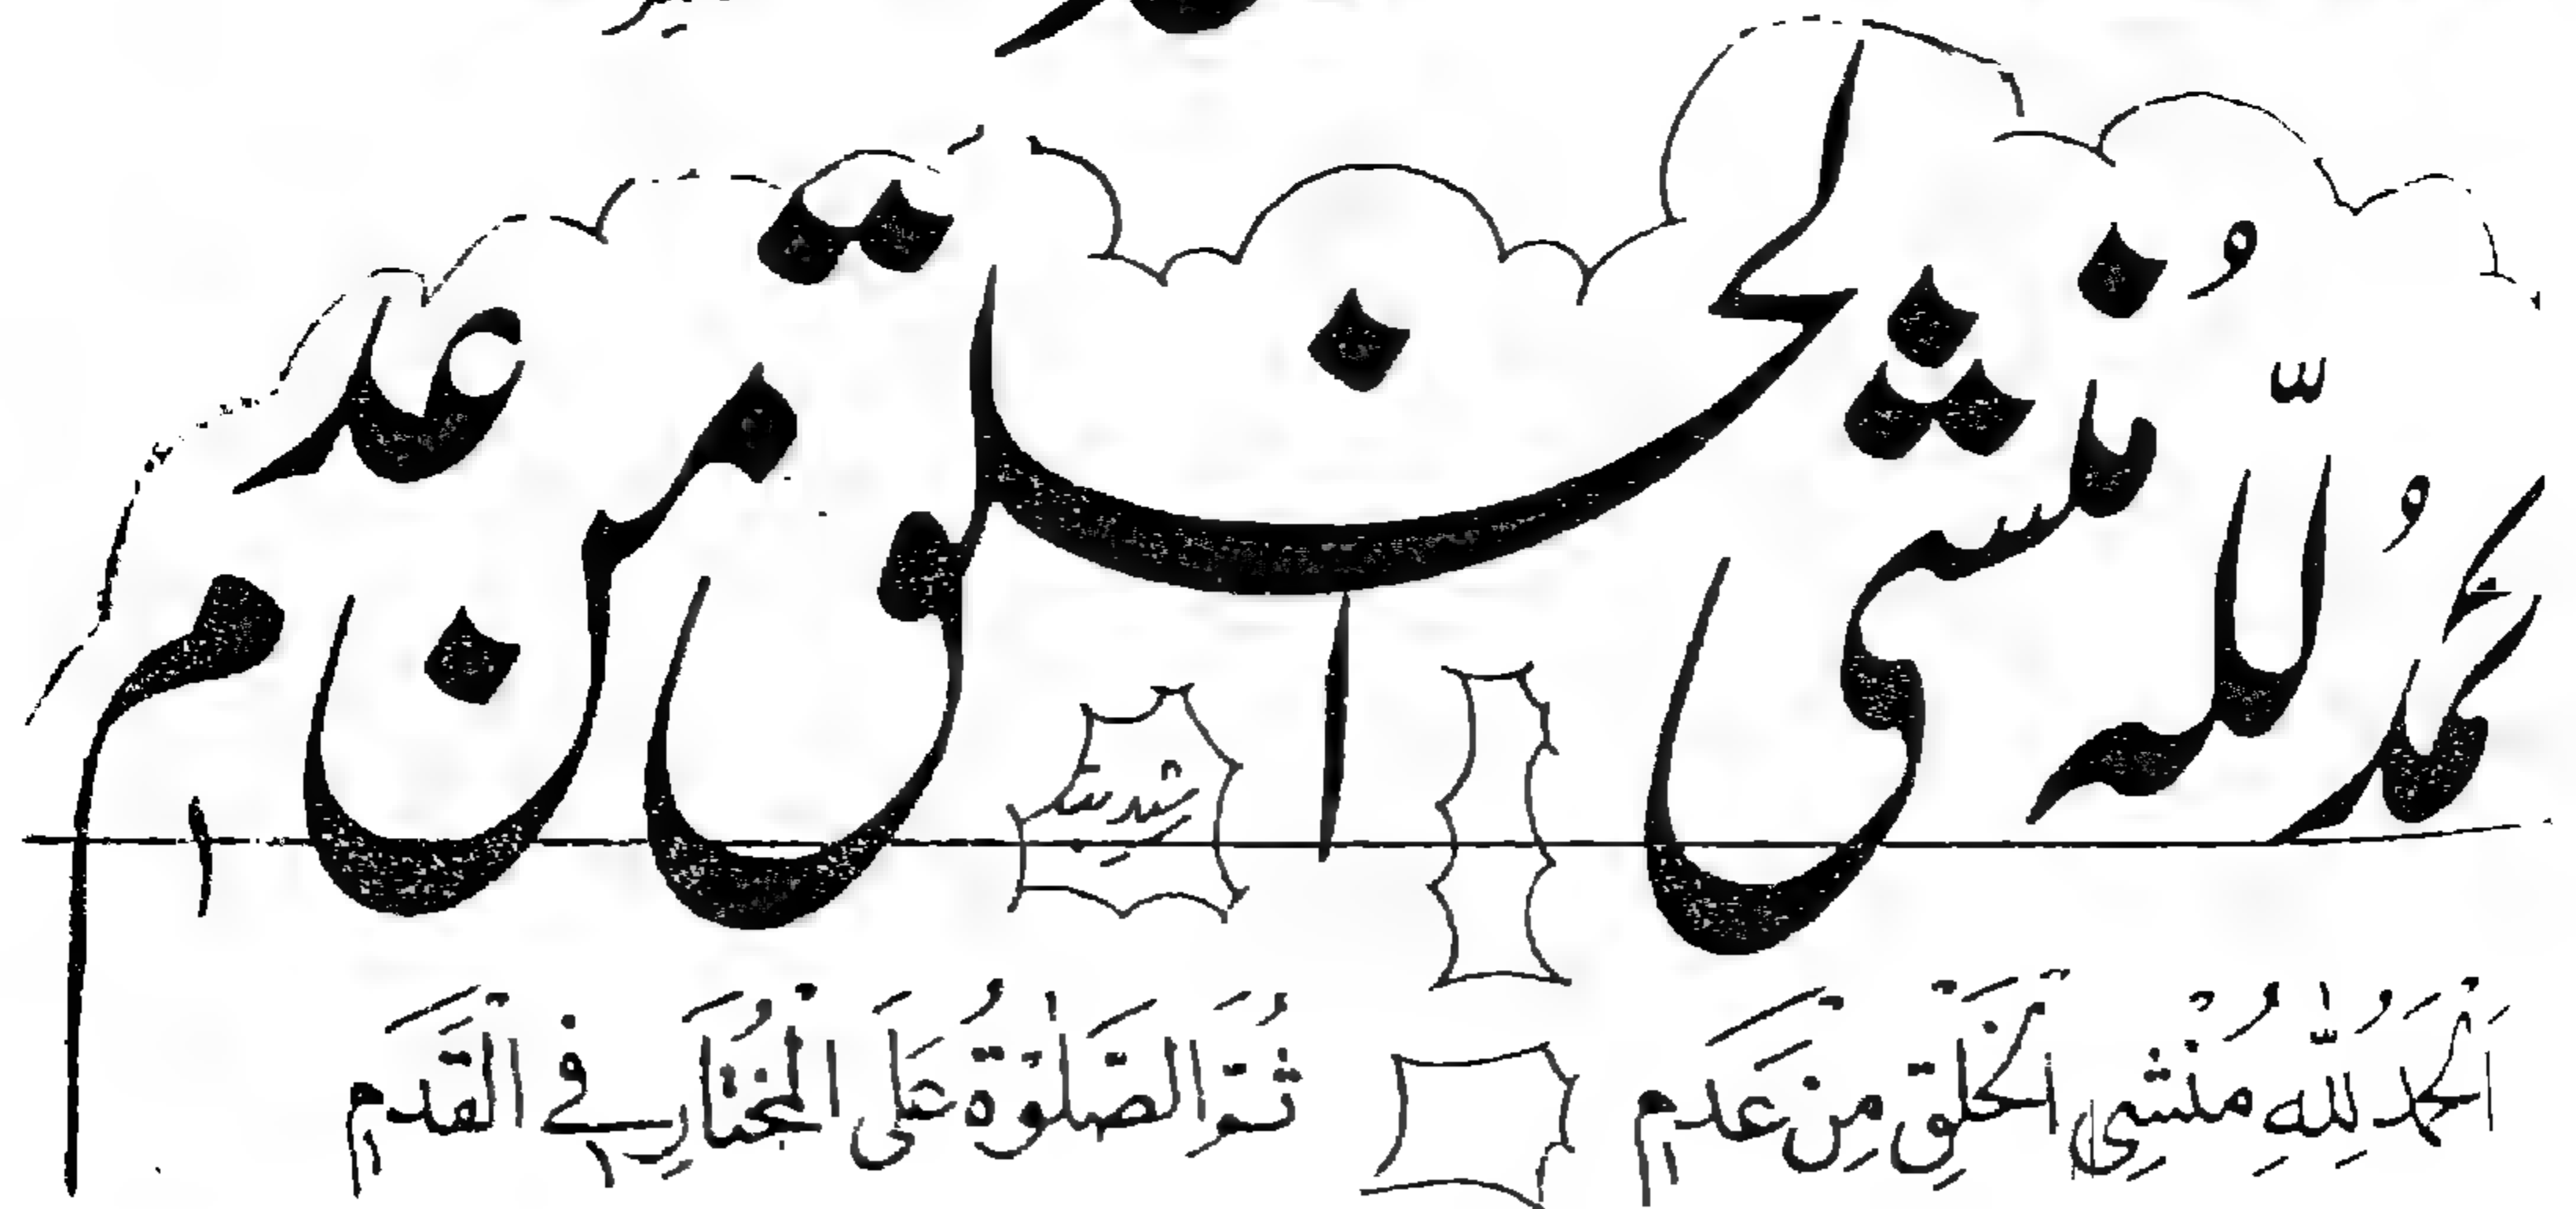 الحمدُ لله منشی الخلق من عدم
اَلْحَمْدُ لِلّٰهِ مُنْشِی الْخَلْقِ مِنْ عَدَمٍ ثُمَّ الصَّلٰوةُ عَلَی الْمُخْتَارِ فِی الْقَدَمِ